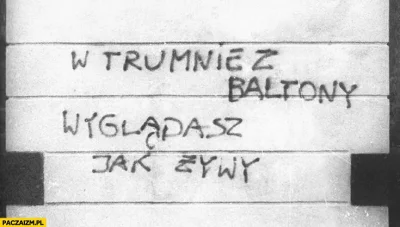 W TRUMNIE Z
BALTONY
WYGLĄDASZ
JAK ŻYWY
PACZAIZM.PL